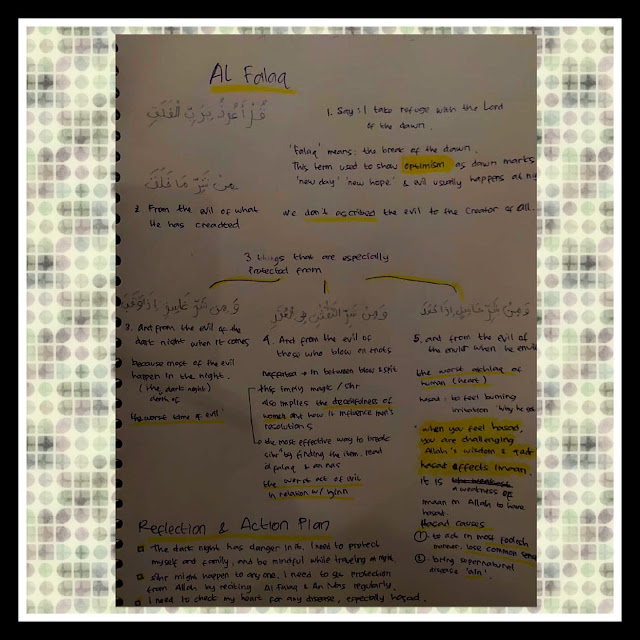 Al Falaq
قُلْ أَعُوذُ بِرَبِّ الْفَلَقِ
1. Say: I take refuge with the Lord
of the dawn.
'Falaq' means: the break of the dawn.
This term used to show optimism as dawn marks
'new day' 'new hope' & evil usually happens at
مِنْ شَرِّ مَا خَلَقَ
2. From the evil of what
He has creadted
We don't ascribed the evil to the Creator of all.
3 things that are especially
protected from
وَمِنْ شَرِّ غَاسِقٍ إِذَا وَقَبَ
3. And from the evil of the
dark night when it comes
because most of the evil
happen in the night.
(the dark night)
depth of
the worst time of evil
وَمِنْ شَرِّ النَّفَّاثَاتِ فِي الْعُقَدِ
4. And from the evil of
those who blow on knots
naffathat → in between blow & spit
this imply magic / sihr
also implies the deceitfulness of
women and how is influence men's
resolutions
the most effective way to break
sihr by finding the item, read
al falaq & an nas
the worst act of evil
in relation w/ jinn
وَمِنْ شَرِّ حَاسِدٍ إِذَا حَسَدَ
5. and from the evil of
the envier when he
the worst of
human (heart)
hasad: to feel burning
irritation 'why he
when you feel hasad,
you are challenging
Allah's wisdom &
hasad effects imaan.
it is the weakest
a weakness of
imaan in Allah to have
hasad.
Hasad causes
① to act in most foolish
manner, lose common
② bring supernatural
disease 'ain'
Reflection & Action Plan
The dark night has danger in it, I need to protect
myself and family, and be mindful while traveling at night.
Sihr might happen to any one. I need to get protection
from Allah by reciting Al Falaq & An Nas regularly.
I need to check my heart for any disease, especially hasad.